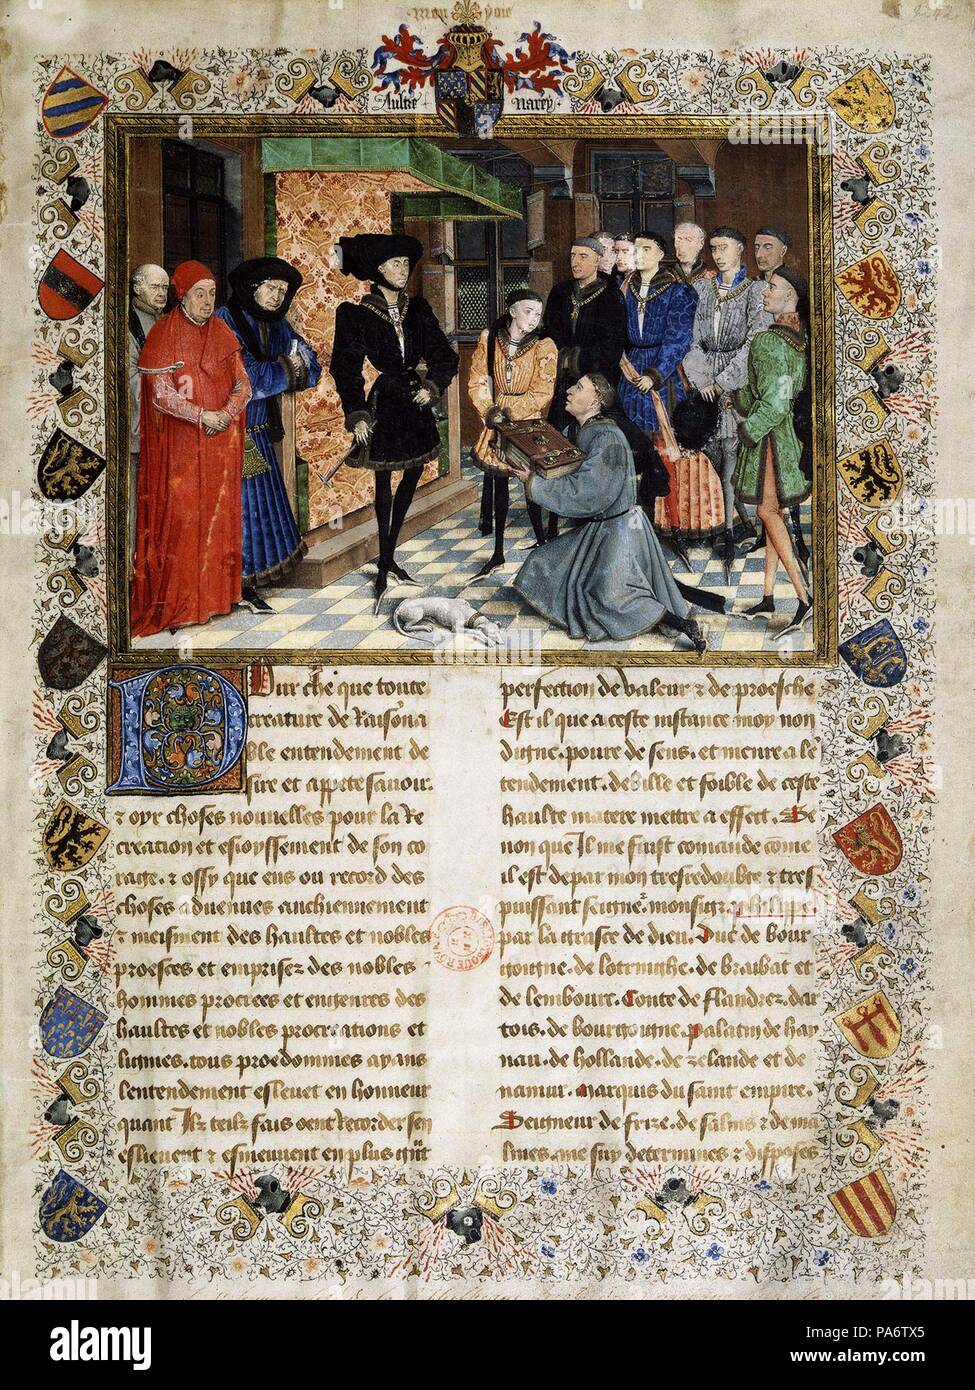 Mon joie
Aultre narey
Pour che que toute
creature de Raison a
ble entendement de
sire et appete savoir.
& oyr choses nouvelles pour la Re
creation et esjoyssement de son co
rage. & ossy que ens ou record des
choses advenues anchiennement
& meisment des haultes et nobles
proesces et emprisez des nobles
hommes procreés et engenres des
haultes et nobles procreations et
lignies. tous proedommes ayans
lentendement eslevet en honneur
quant Ilz teilz fais oent Recorder sen
eslievent & esmeuvent en plus grāt
perfection de valeur & de proesche
Est il que a ceste instance moy non
digne. povre de sens. et menre a le
tendement. debille et foible de ceste
haulte matere mettre a effect. Se
non que Il me fuist comande cōme
il est depar mon tresredoubte & tres
puissant seignr. monsigr phelippe
par la grasce de dieu. Duc de bour
goigne. de lotringhe. de braibāt et
de lembourc. Conte de flandrez. dar
tois. de bourgoingne. palatin de hay
nau. de hollande. de zelande et de
namur. Marquis du saint empire.
Seigneur de frize. de salins & de ma
lines. me suy determines & disposes
alamy
Image ID: PA6TX5
www.alamy.com